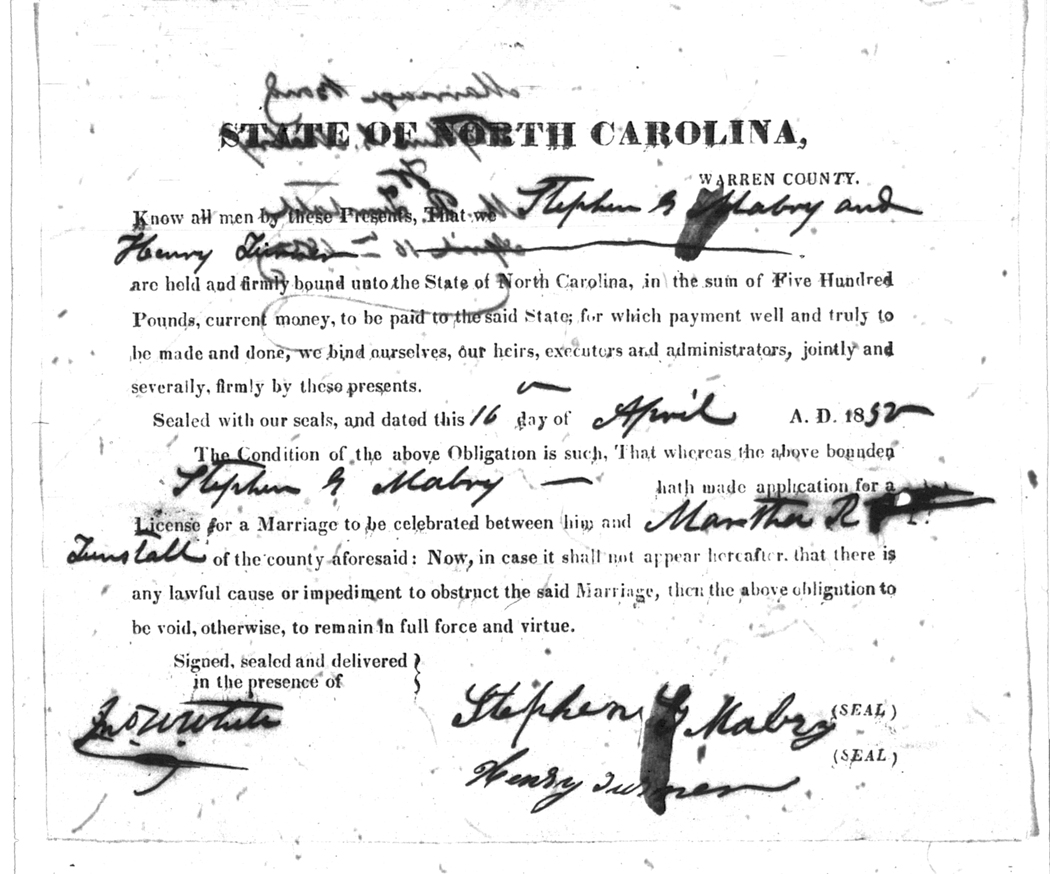 STATE OF NORTH CAROLINA,
WARREN COUNTY.
Know all men by these Presents, That we Stephen G Mabry and
Henry Turner
are held and firmly bound unto the State of North Carolina, in the sum of Five Hundred
Pounds, current money, to be paid to the said State; for which payment well and truly to
be made and done, we bind ourselves, our heirs, executors and administrators, jointly and
severally, firmly by these presents.
Sealed with our seals, and dated this 16 day of April A. D. 1852
The Condition of the above Obligation is such, That whereas the above bounden
Stephen G Mabry — hath made application for a
License for a Marriage to be celebrated between him and Martha R
Tunstall of the county aforesaid: Now, in case it shall not appear hereafter. that there is
any lawful cause or impediment to obstruct the said Marriage, then the above obligation to
be void, otherwise, to remain in full force and virtue.
Signed, sealed and delivered
in the presence of
Jno W. White
Stephen G Mabry (SEAL)
Henry Turner (SEAL)